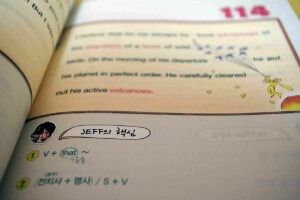 114
I believe that for his escape he took advantage of
the migration of a flock of wild
birds. On the morning of his departure he put
his planet in perfect order. He carefully cleaned
out his active volcanoes.
JEFF의 핵심
1 V + that ~
2 (전치사 + 명사) / S + V